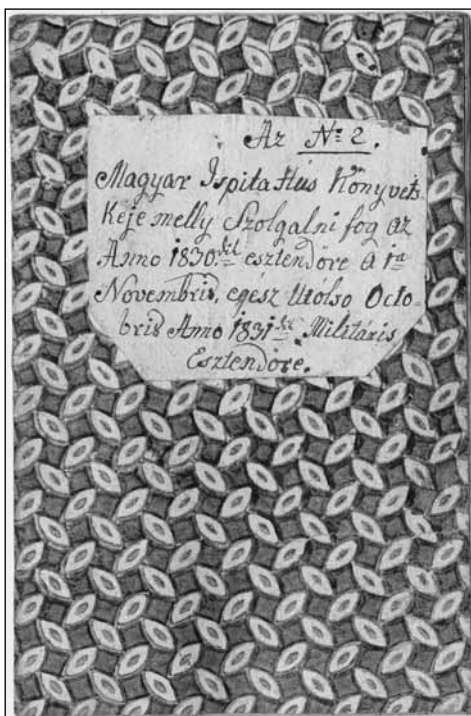 Az No 2.
Magyar Ispita Hús Könyvets-
keje melly Szolgalni fog az
Anno 1830dik esztendöre a 1a
Novembris, egész Utólso Octo-
bris Anno 1831dik Militaris
Esztendöre.